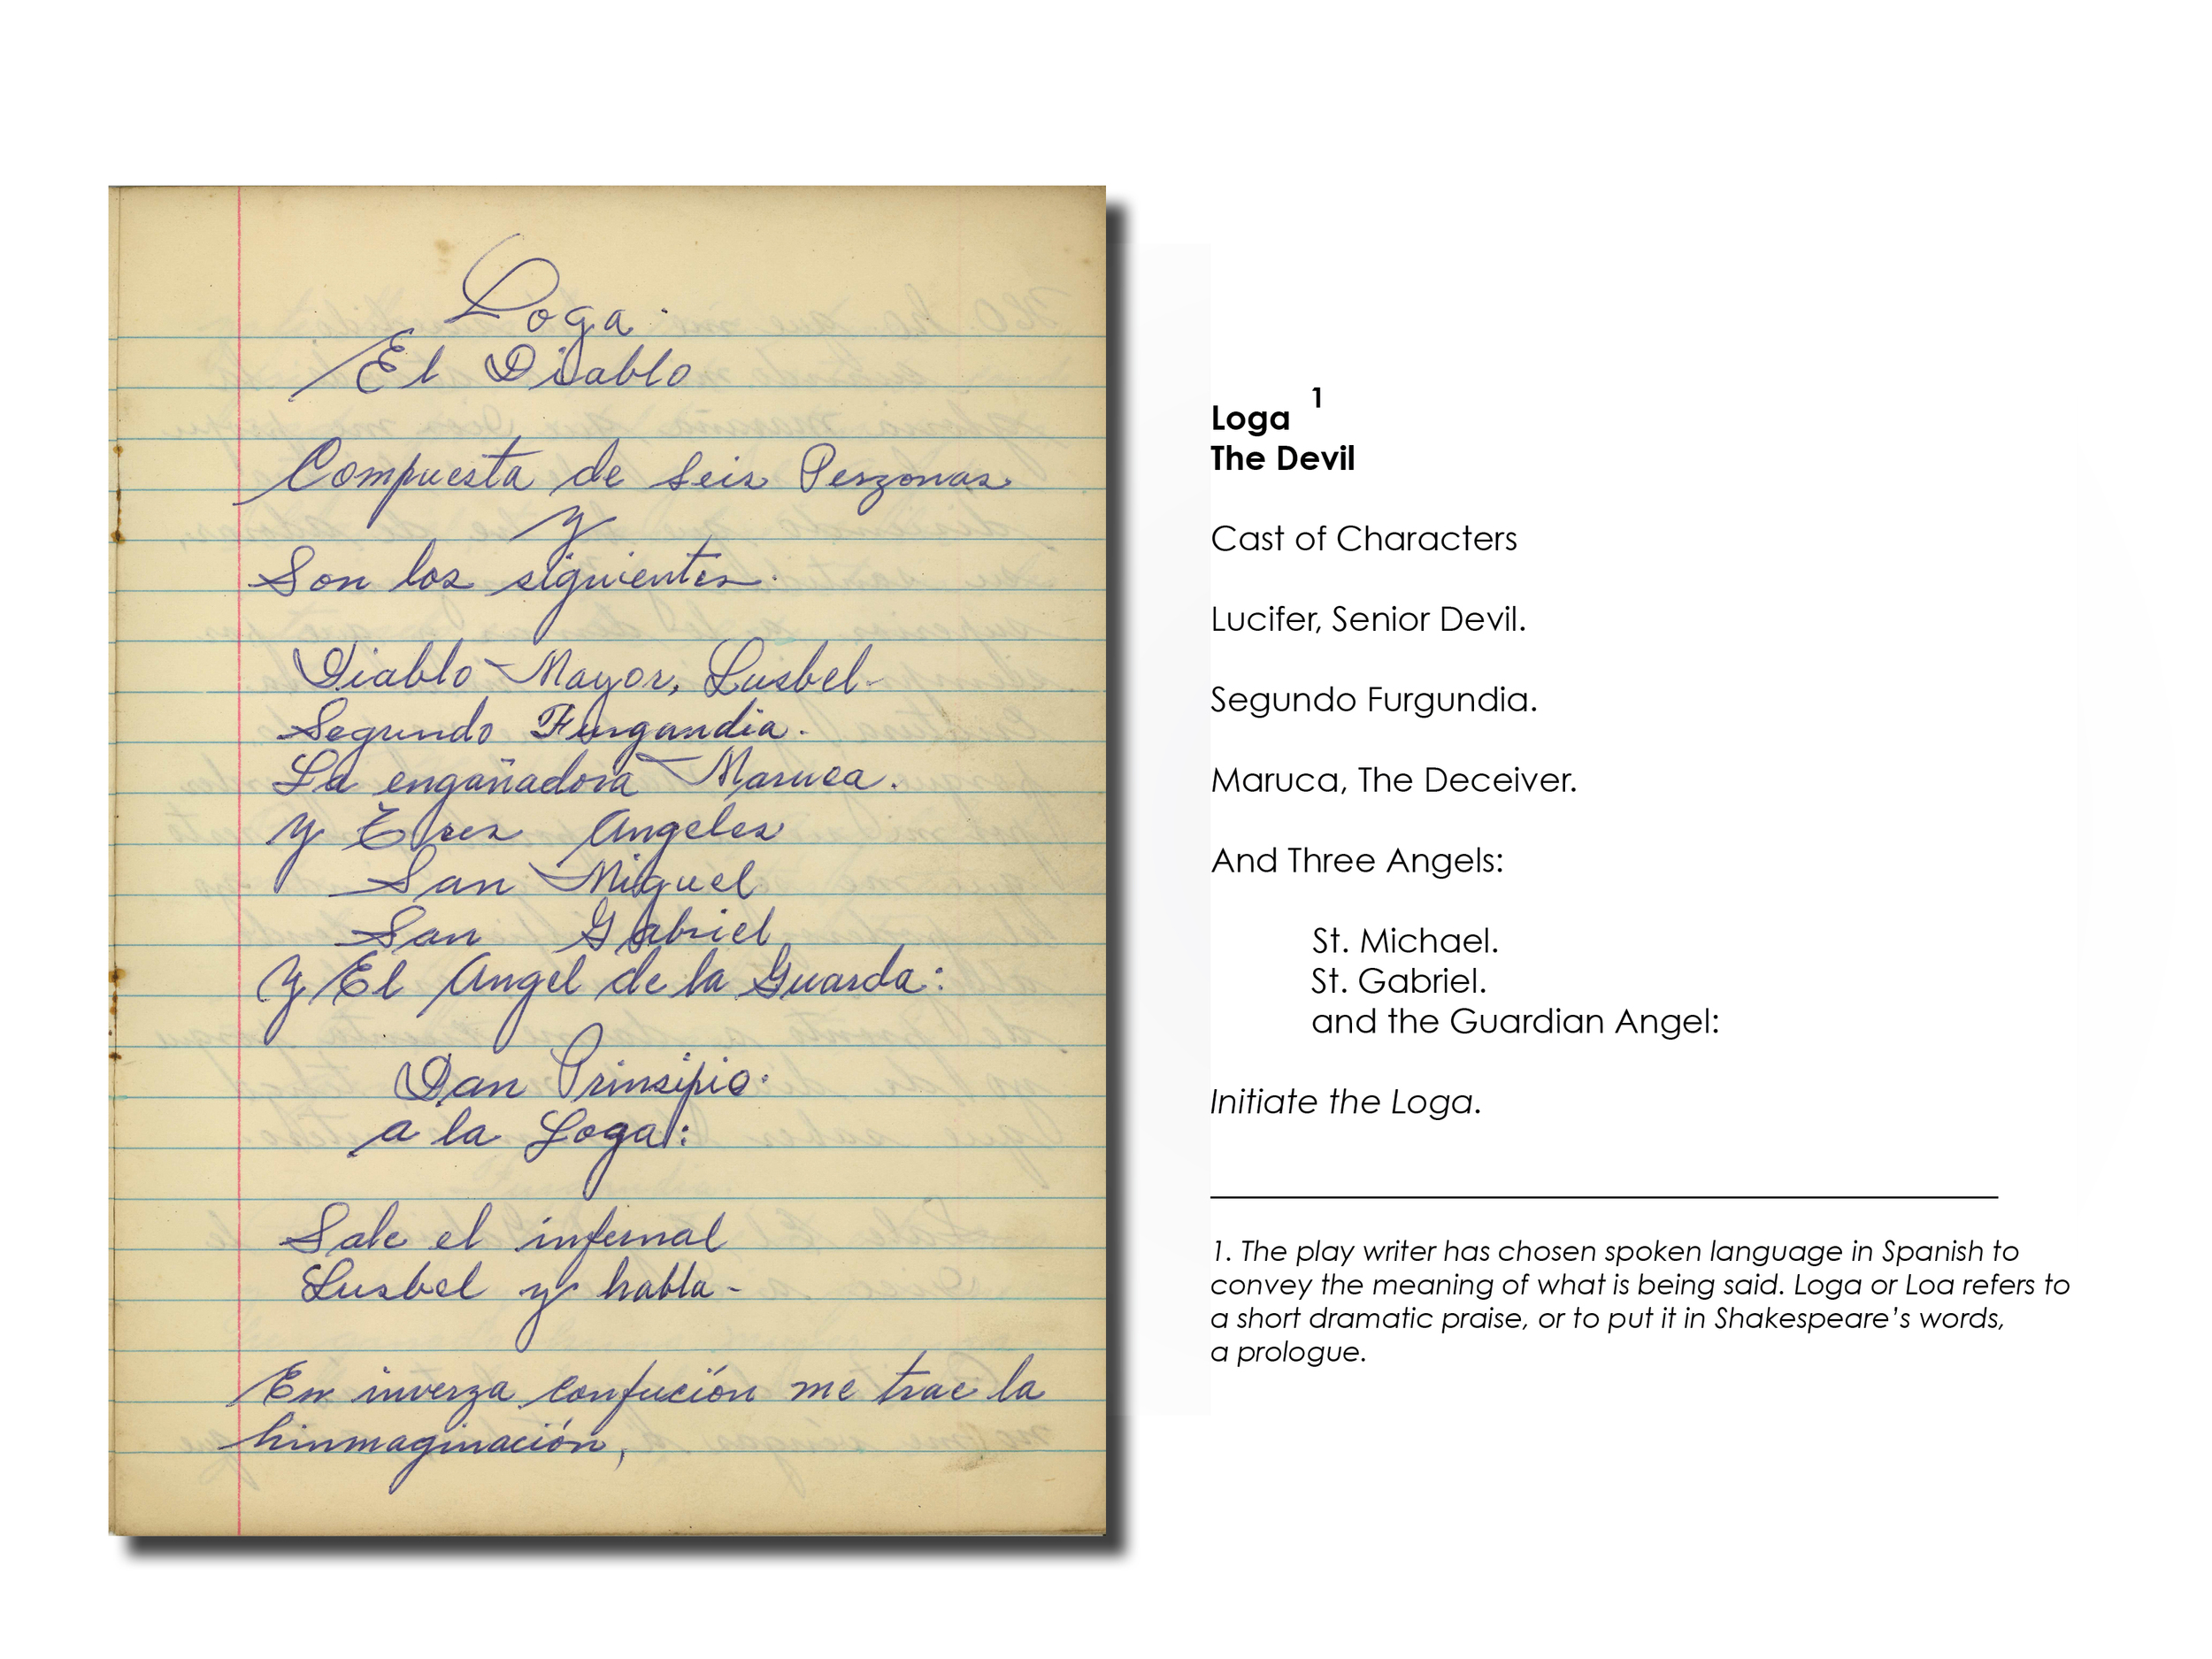 Loga.
El Diablo
Compuesta de seis Perzonas
y
Son los siguientes.
Diablo Mayor, Lusbel-
Segundo Furgandia.
La engañadora Maruca.
y Tres Angeles
San Miguel
San Gabriel
y El Angel de la Guarda:
Dan Prinsipio.
a la Loga:
Sale el infernal
Lusbel y habla-
En inverza confución me trae la
hinmaginación,
Loga 1
The Devil
Cast of Characters
Lucifer, Senior Devil.
Segundo Furgundia.
Maruca, The Deceiver.
And Three Angels:
St. Michael.
St. Gabriel.
and the Guardian Angel:
Initiate the Loga.
1. The play writer has chosen spoken language in Spanish to
convey the meaning of what is being said. Loga or Loa refers to
a short dramatic praise, or to put it in Shakespeare’s words,
a prologue.